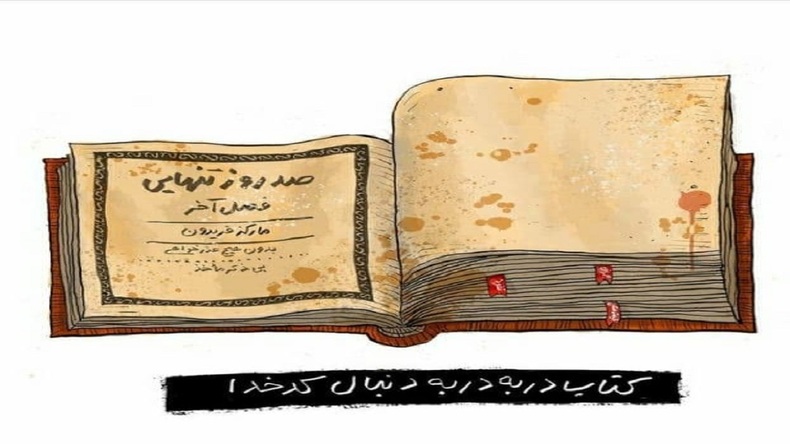 صد روز تنهایی
فصل آخر
مارکز فریدون
بدون هیچ عذرخواهی
بی ذکر مأخذ
کتاب دربه دربه دنبال کدخدا